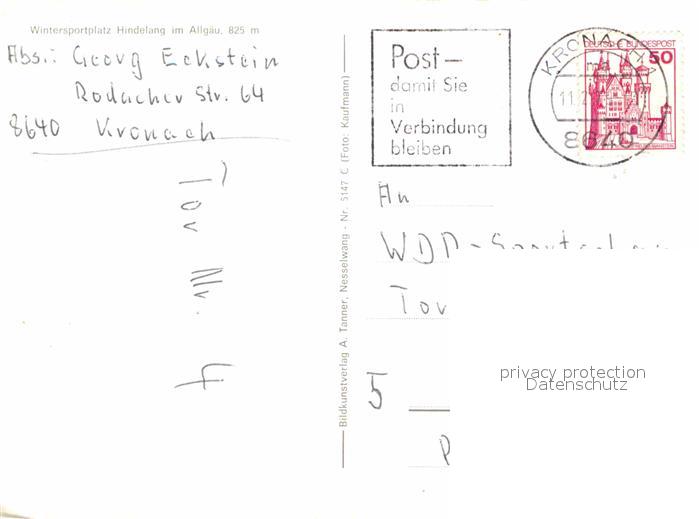 Wintersportplatz Hindelang im Allgäu, 825 m
Abs.: Georg Eckstein
Rodacher Str. 64
8640 Kronach
Bildkunstverlag A. Tanner, Nesselwang - Nr. 5147 C (Foto: Kaufmann)
Post-
damit Sie
in
Verbindung
bleiben
KRONACH
8640
DEUTSCHE BUNDESPOST
50
An
Tor
5
P
privacy protection
Datenschutz